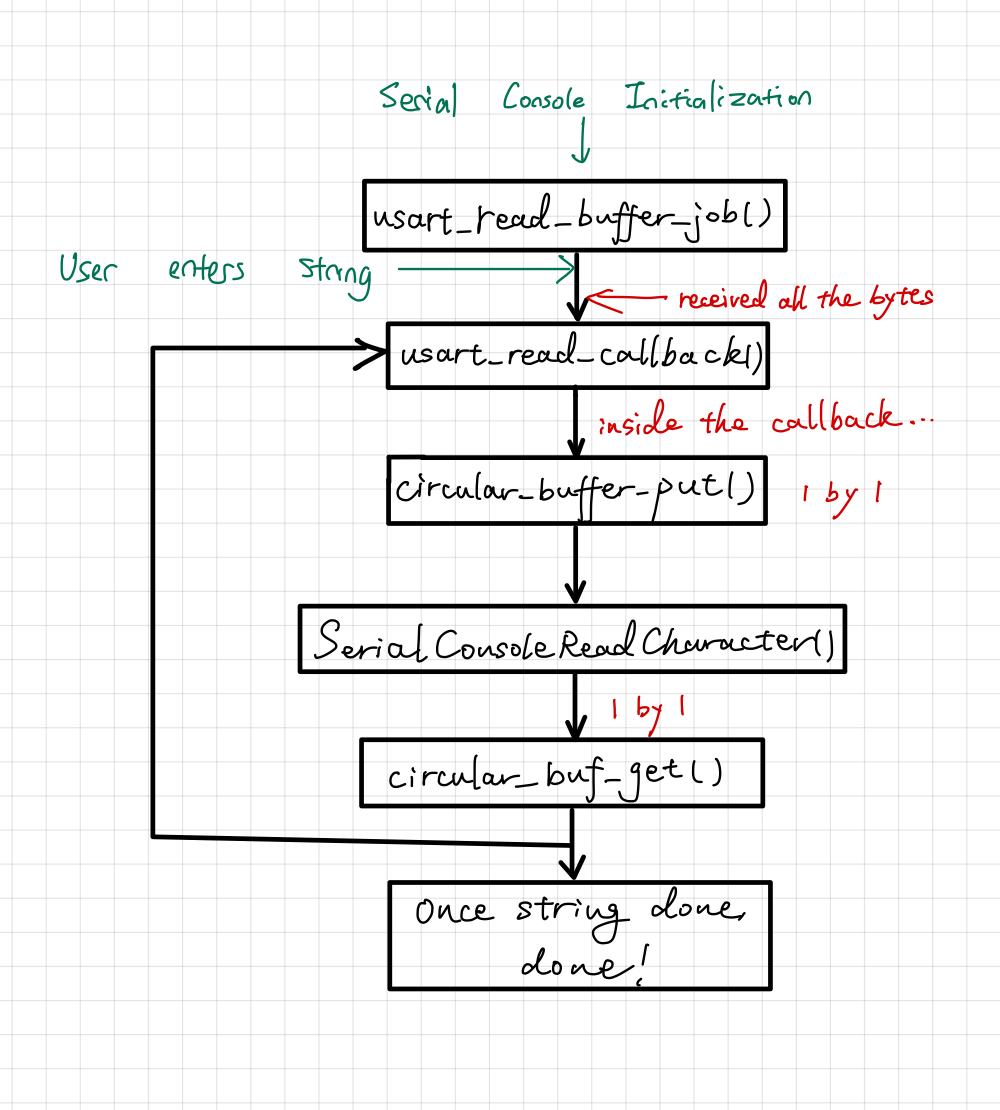 Serial Console Initialization
usart_read_buffer_job()
User enters strng
received all the bytes
usart_read_callback()
inside the callback...
circular_buffer_put()
1 by 1
SerialConsoleReadCharacter()
1 by 1
circular_buf_get()
Once string done,
done!